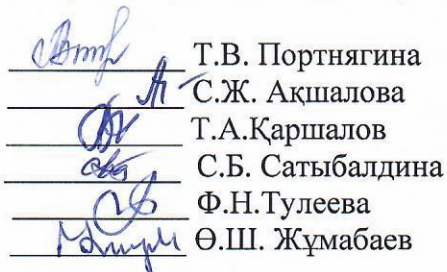 Т.В. Портнягина
С.Ж. Ақшалова
Т.А.Қаршалов
С.Б. Сатыбалдина
Ф.Н.Тулеева
Ө.Ш. Жұмабаев